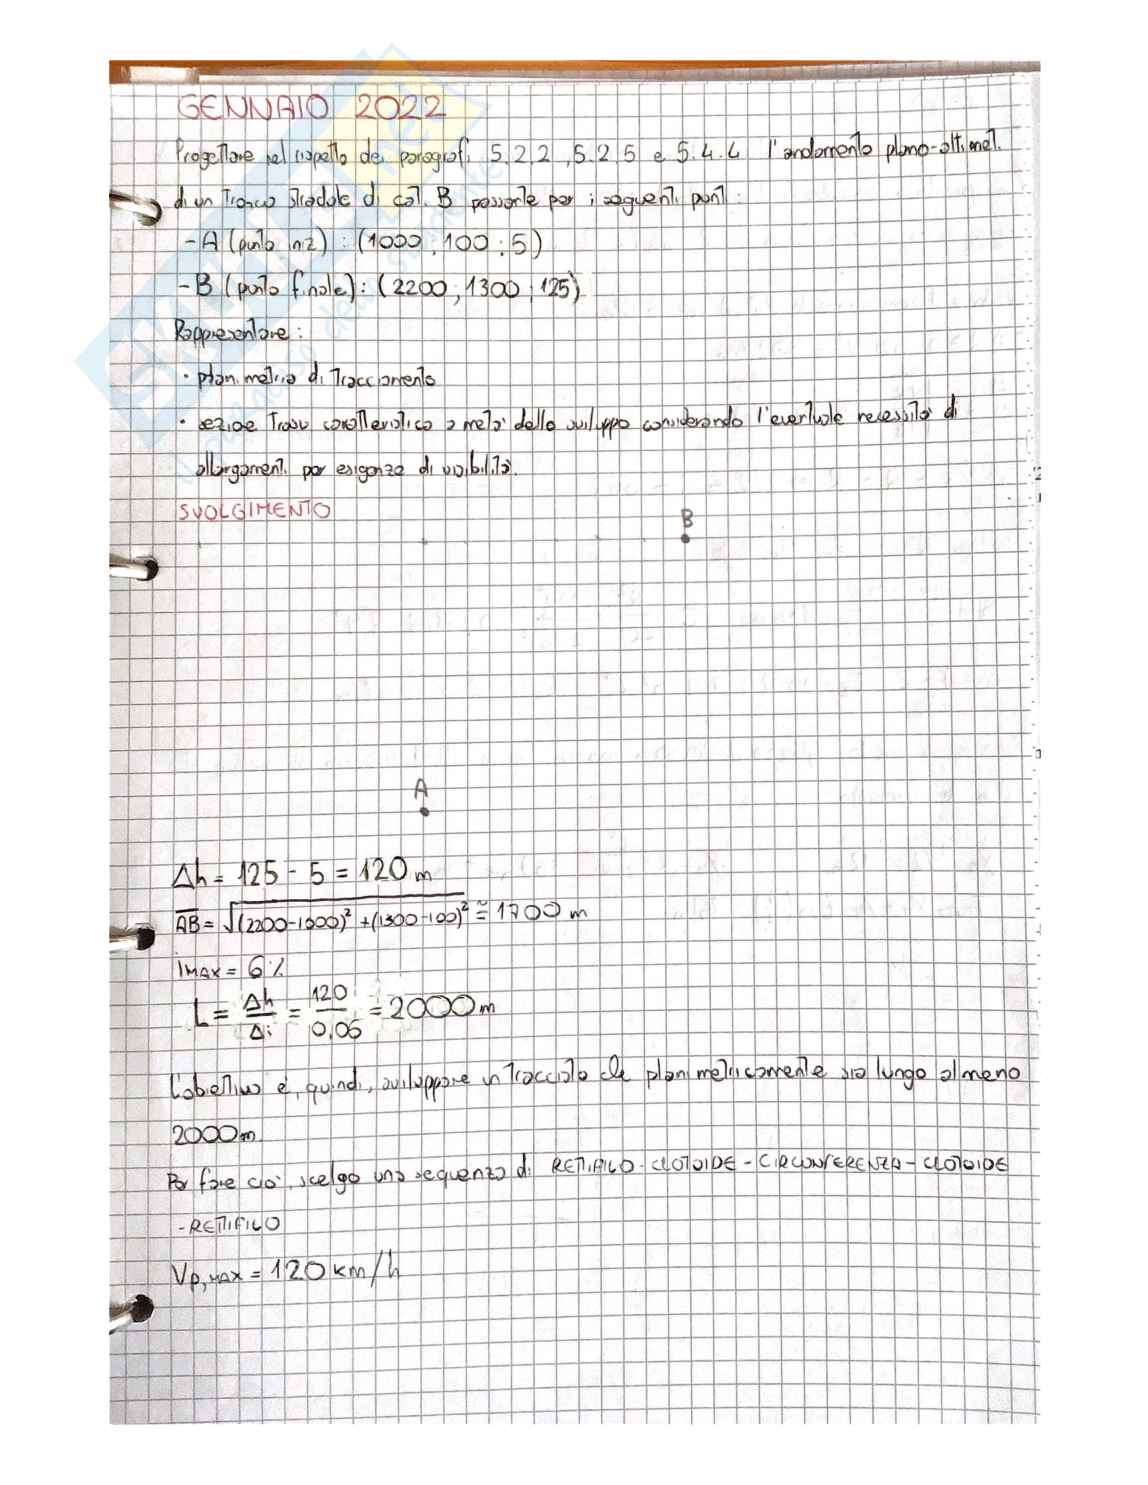 GENNAIO 2022
Progettare nel rispetto dei paragrafi 5.2.2, 5.2.5 e 5.4.4 l'andamento plano-altimet.
di un tronco stradale di cat. B passante per i seguenti punti:
- A (punto iniz) : (1000 ; 100 ; 5)
- B (punto finale) : (2200 ; 1300 ; 125)
Rappresentare :
• planimetria di tracciamento
• sezione trasv caratteristica a metà dello sviluppo considerando l'eventuale necessità di
allargamenti per esigenze di visibilità.
SVOLGIMENTO
B
A
Δh = 125 - 5 = 120 m
AB = √(2200-1000)² + (1300-100)² ≅ 1700 m
iMAX = 6 %
L = Δh/Δi = 120/0,06 = 2000 m
L'obiettivo è, quindi, sviluppare un tracciato che planimetricamente sia lungo almeno
2000 m
Per fare ciò, scelgo una sequenza di RETTIFILO - CLOTOIDE - CIRCONFERENZA - CLOTOIDE
- RETTIFILO
Vp,MAX = 120 km/h